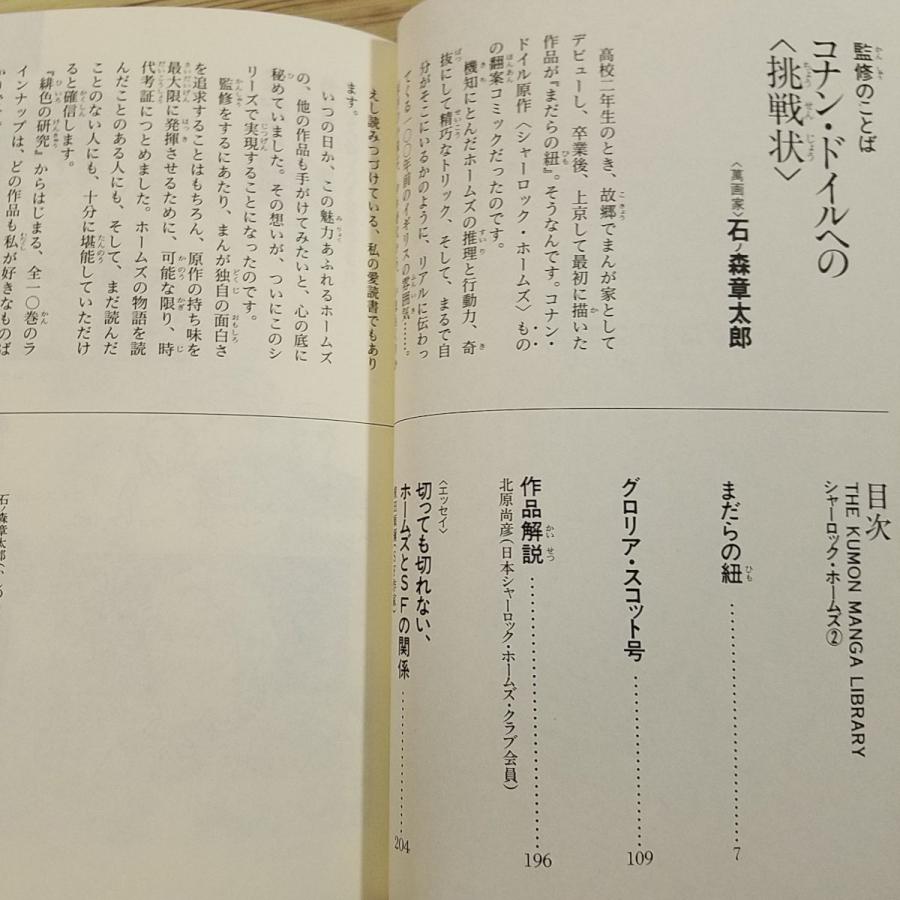 監修のことば
コナン・ドイルへの
〈挑戦状〉
〈萬画家〉石ノ森章太郎
高校二年生のとき、故郷でまんが家として
デビューし、卒業後、上京して最初に描いた
作品が『まだらの紐』。そうなんです。コナン・
ドイル原作〈シャーロック・ホームズ〉もの
の翻案コミックだったのです。
機知にとんだホームズの推理と行動力、奇
抜にして精巧なトリック、そして、まるで自
分がそこにいるかのように、リアルに伝わっ
てくる一〇〇年前のイギリスの雰囲気……。
えし読みつづけている、私の愛読書でもあり
ます。
いつの日か、この魅力あふれるホームズ
の、他の作品も手がけてみたいと、心の底に
秘めていました。その想いが、ついにこのシ
リーズで実現することになったのです。
監修をするにあたり、まんが独自の面白さ
を追求することはもちろん、原作の持ち味を
最大限に発揮させるために、可能な限り、時
代考証につとめました。ホームズの物語を読
んだことのある人にも、そして、まだ読んだ
ことのない人にも、十分に堪能していただけ
ると確信します。
『緋色の研究』からはじまる、全一〇巻のラ
インナップは、どの作品も私が好きなものば
目次
THE KUMON MANGA LIBRARY
シャーロック・ホームズ②
まだらの紐……7
グロリア・スコット号……109
作品解説……196
北原尚彦(日本シャーロック・ホームズ・クラブ会員)
〈エッセイ〉
切っても切れない、
ホームズとSFの関係……204
石ノ森章太郎